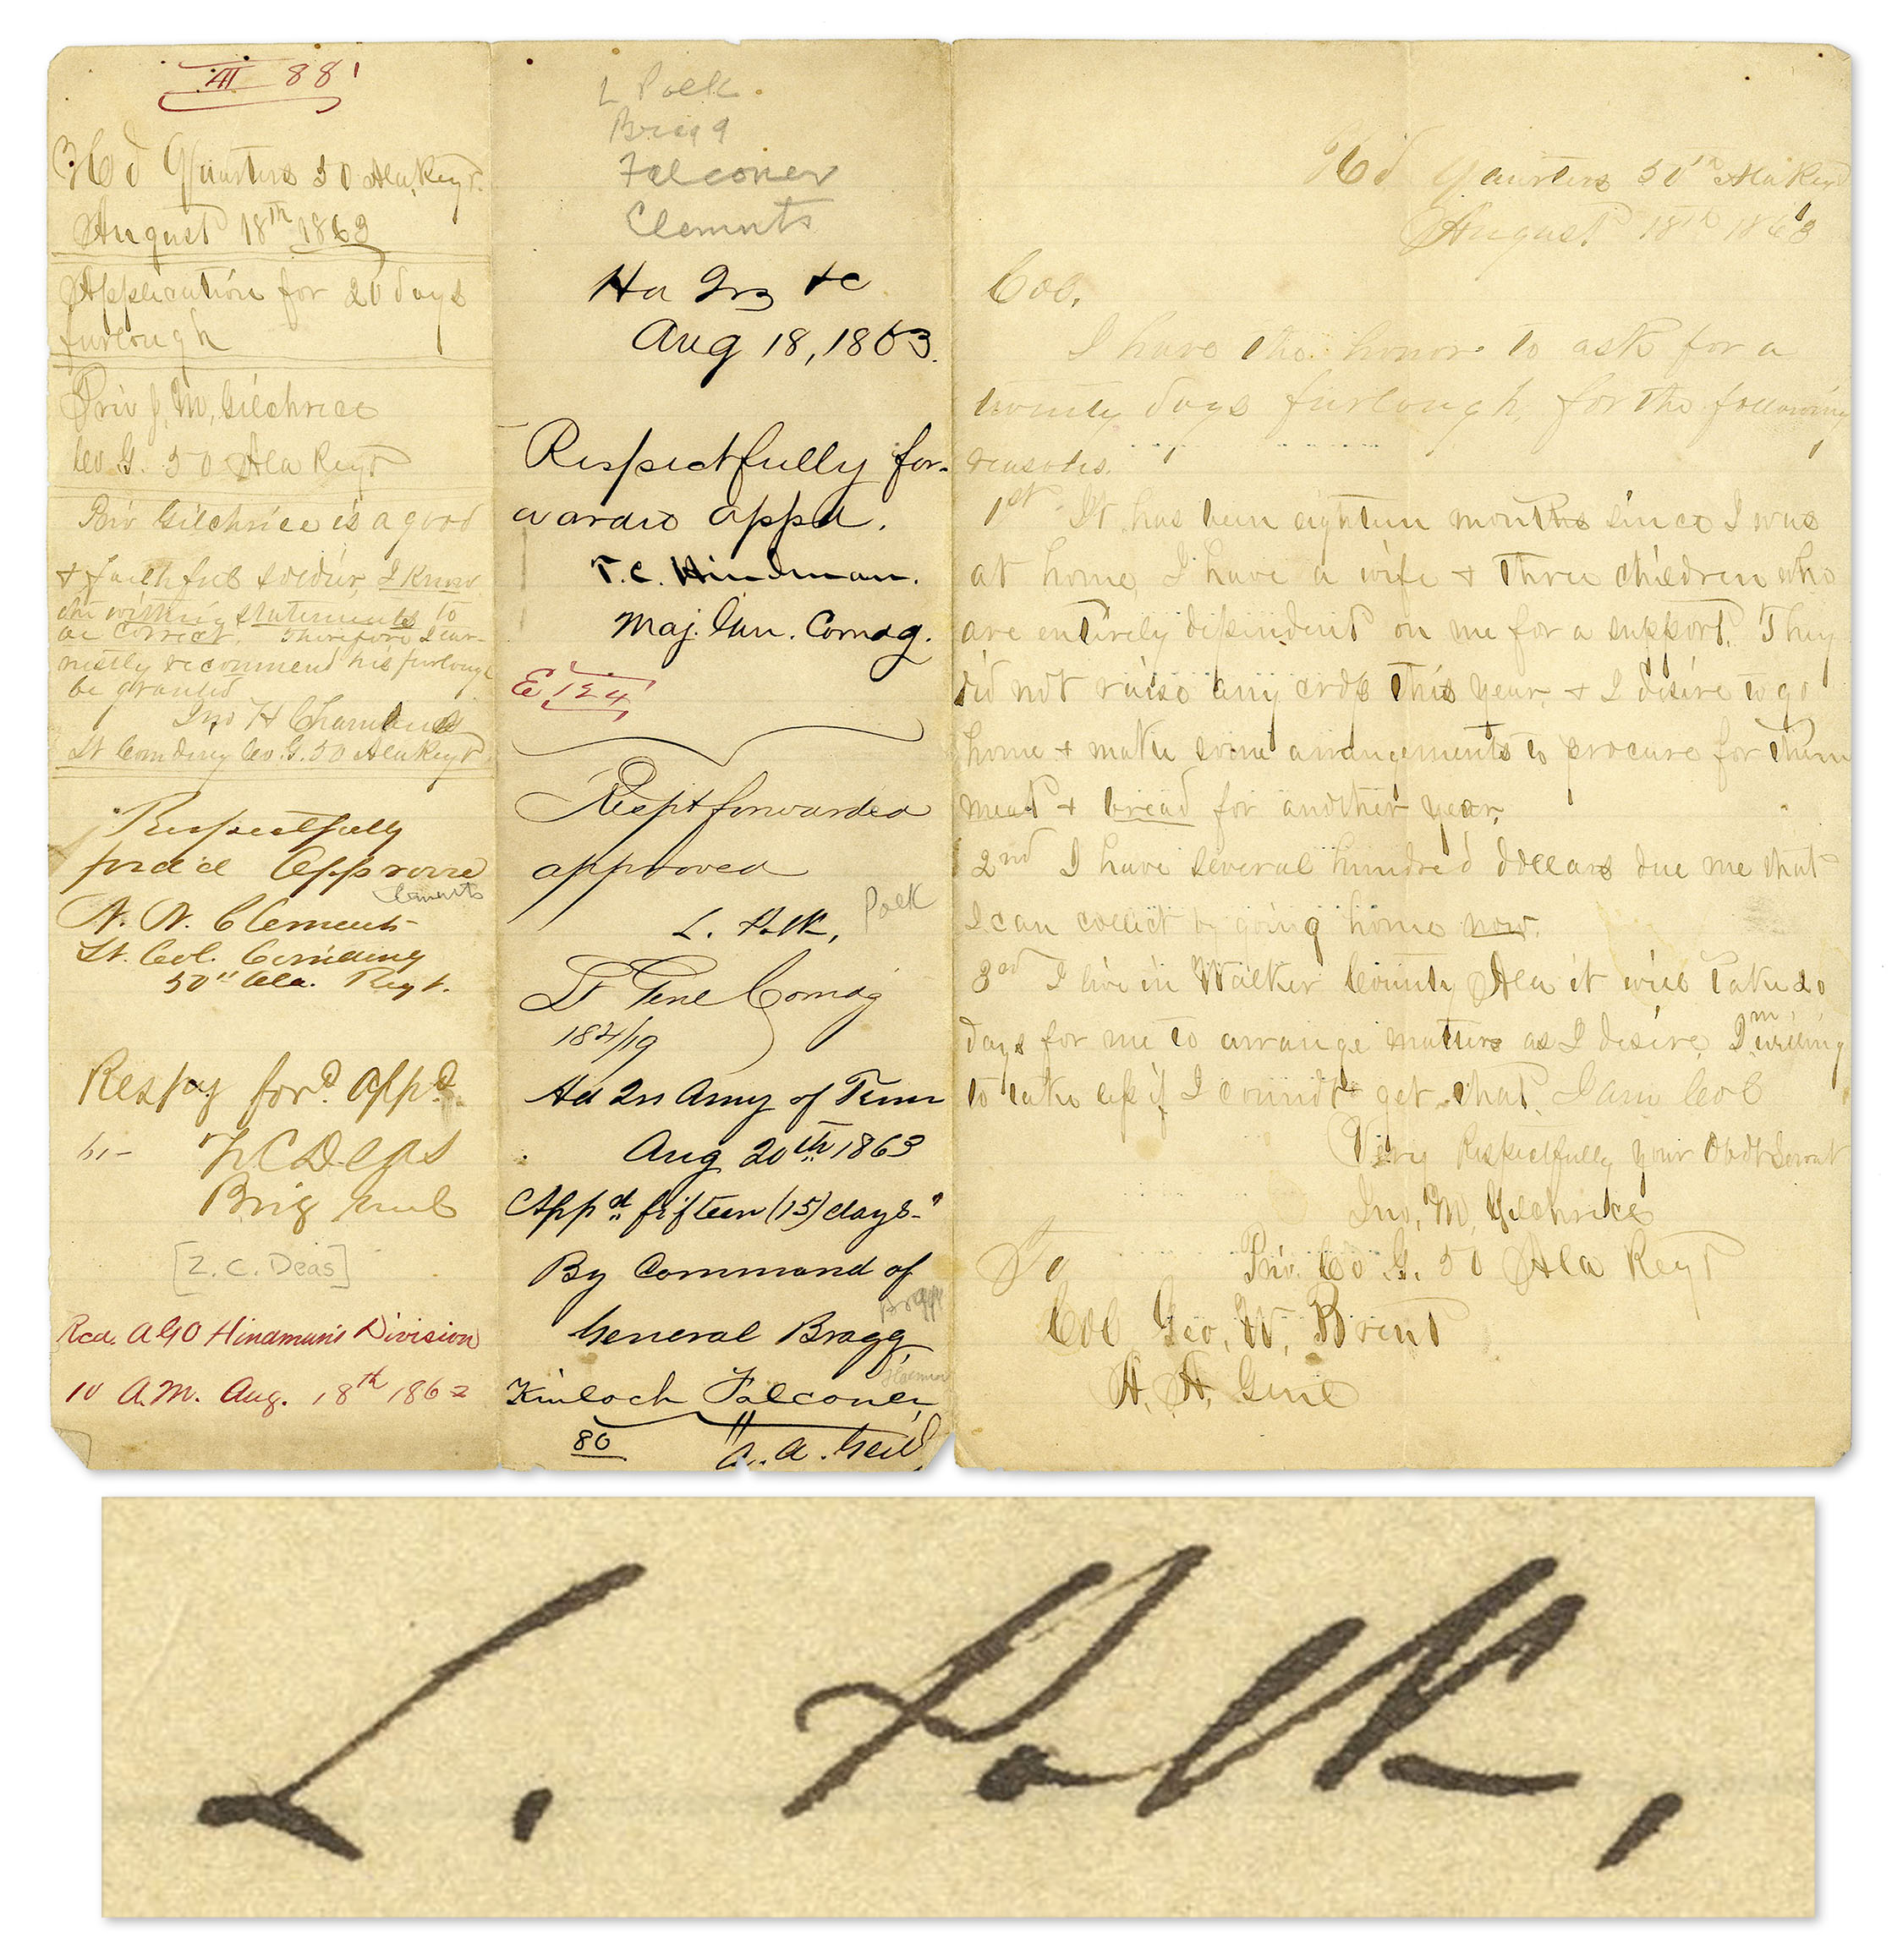 III 881
Hd Quarters 50 Ala Regt.
August 18th 1863
Application for 20 days
furlough
Priv J. M. Gilchrice
Co G. 50 Ala Regt
Priv Gilchrice is a good
& faithful soldier, I know
the within statements to
be correct. Therefore I ear-
nestly recommend his furlough
be granted
Jno H Chambers
Lt Comding Co. G. 50 Ala Regt
Respectfully
ford'd Approve
Clements
N. N. Clements
Lt. Col. Comding
50" Ala. Regt.
Respy ford. appd.
Z C Deas
Brig Genl
[Z. C. Deas]
Rcd. AGO Hindman's Division
10 A.M. Aug. 18th 1863
L Polk
Bragg
Falconer
Clemnts
Hd Qrs &c
Aug 18, 1863.
Respectfully for-
warded appd.
T. C. Hindman.
Maj. Gen. Comdg.
E 124
Respt forwarded
approved
Polk
L. Polk,
Lt Genl Comdg
184/19
Hd Qrs Army of Tenn
Aug 20th 1863
Appd. fifteen (15) days "
By Command of
Bragg
General Bragg
Kinloch Falconer
80
A. A. Genl,
Hd Quarters 50th Ala Regt
August 18th 1863
Col.
I have the honor to ask for a
twenty days furlough, for the following
reasons.
1st It has been eighteen months since I was
at home, I have a wife & three children who
are entirely dependent on me for a support. They
did not raise any crop this year, & I desire to go
home & make some arrangements to procure for them
meat & bread for another year,
2nd I have several hundred dollars due me that
I can collect by going home now.
3rd I live in Walker County Ala it will take 20
days for me to arrange matters as I desire, I'm willing
to take less if I connot get that, I am Col
Very Respectfully your Obdt Servnt
Jno, M, Gilchrice
Priv. Co G. 50 Ala Regt
To
Col Geo, W, Brent
A. A. Genl
L. Polk,